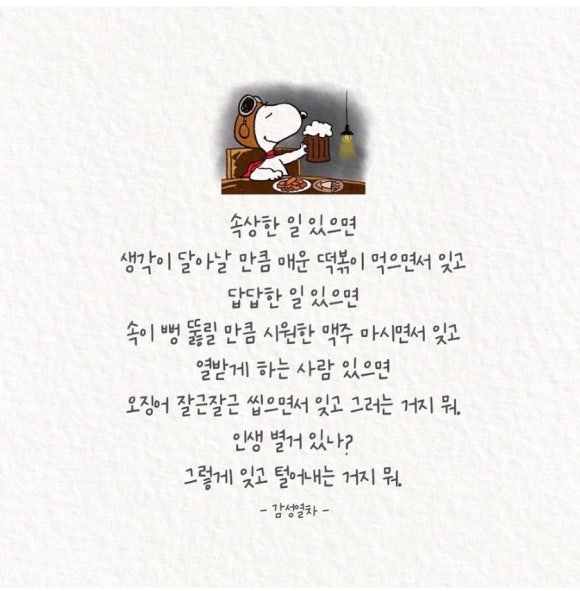 속상한 일 있으면
생각이 달아날 만큼 매운 떡볶이 먹으면서 잊고
답답한 일 있으면
속이 뻥 뚫릴 만큼 시원한 맥주 마시면서 잊고
열받게 하는 사람 있으면
오징어 잘근잘근 씹으면서 잊고 그러는 거지 뭐.
인생 별거 있나?
그렇게 잊고 털어내는 거지 뭐.
- 감성열차 -